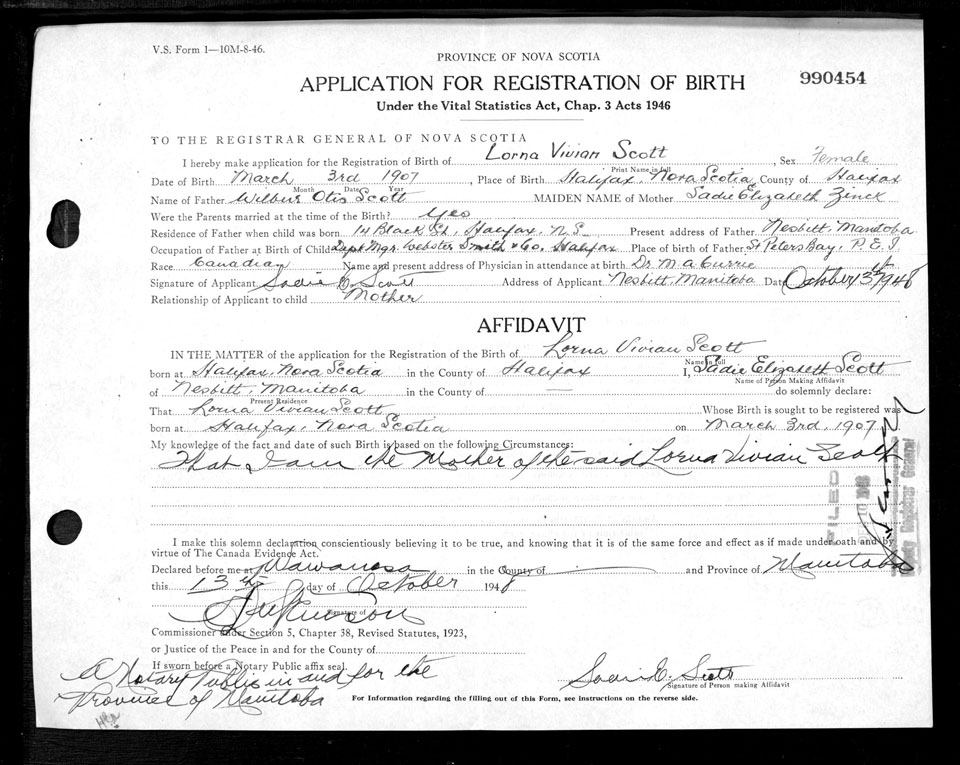 V.S. Form 1—10M-8-46.
PROVINCE OF NOVA SCOTIA
APPLICATION FOR REGISTRATION OF BIRTH
990454
Under the Vital Statistics Act, Chap. 3 Acts 1946
TO THE REGISTRAR GENERAL OF NOVA SCOTIA
I hereby make application for the Registration of Birth of Lorna Vivian Scott, Sex Female
Print Name in full
Date of Birth March 3rd 1907, Place of Birth Halifax, Nova Scotia County of Halifax
Month Date Year
Name of Father Wilbur Otis Scott MAIDEN NAME of Mother Sadie Elizabeth Zinck
Were the Parents married at the time of the Birth? Yes
Residence of Father when child was born 14 Black St, Halifax, N.S. Present address of Father Nesbitt, Manitoba
Occupation of Father at Birth of Child Dept Mgr. Webster Smith & Co. Halifax Place of birth of Father St Peters Bay, P.E.I.
Race Canadian Name and present address of Physician in attendance at birth Dr. M A Currie
Signature of Applicant Sadie E. Scott Address of Applicant Nesbitt, Manitoba Date October 13th 1948
Relationship of Applicant to child Mother
AFFIDAVIT
IN THE MATTER of the application for the Registration of the Birth of Lorna Vivian Scott
Name in full
born at Halifax, Nova Scotia in the County of Halifax I, Sadie Elizabeth Scott
Name of Person Making Affidavit
of Nesbitt, Manitoba in the County of — do solemnly declare:
Present Residence
That Lorna Vivian Scott Whose Birth is sought to be registered was
born at Halifax, Nova Scotia on March 3rd, 1907
My knowledge of the fact and date of such Birth is based on the following Circumstances:
That I am the Mother of the said Lorna Vivian Scott
FILED
Deputy Registrar General
I make this solemn declaration conscientiously believing it to be true, and knowing that it is of the same force and effect as if made under oath and by
virtue of The Canada Evidence Act.
Declared before me at Wawanesa in the County of — and Province of Manitoba
this 13th day of October 1948
Signature of
Commissioner under Section 5, Chapter 38, Revised Statutes, 1923,
or Justice of the Peace in and for the County of
If sworn before a Notary Public affix seal.
A Notary Public in and for the
Province of Manitoba
Sadie E. Scott
Signature of Person making Affidavit
For Information regarding the filling out of this Form, see instructions on the reverse side.